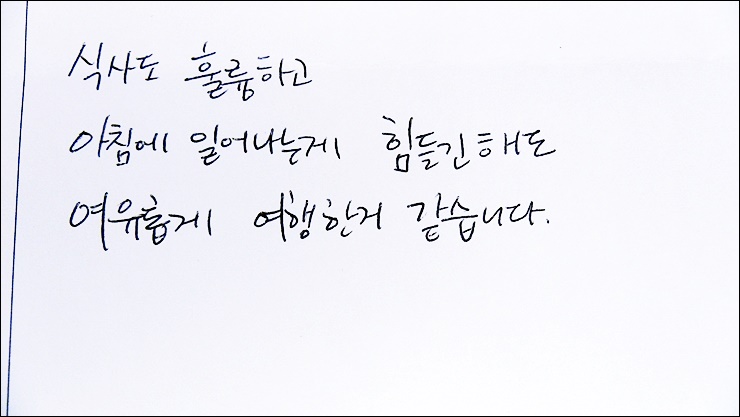 식사도 훌륭하고
아침에 일어나는게 힘들긴해도
여유롭게 여행한거 같습니다.